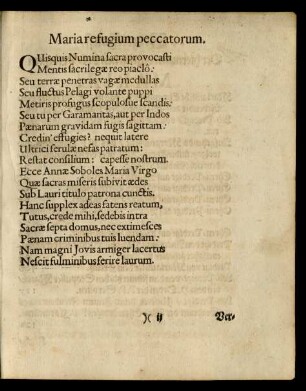 Maria refugium peccatorum.
QUisquis Numina sacra provocasti
Mentis sacrilegæ reo piaclô.
Seu terræ penetras vagæ medullas
Seu fluctus Pelagi volante puppi
Metiris profugus scopulosue scandis.
Seu tu per Garamantas, aut per Indos
Pœnarum gravidam fugis sagittam.
Credin' effugies? nequit latere
Ultrici ferulæ nefas patratum:
Restat consilium: capesse nostrum.
Ecce Annæ Soboles Maria Virgo
Quæ sacras miseris subivit ædes
Sub Lauri titulo patrona cunctis.
Hanc supplex adeas fatens reatum,
Tutus, crede mihi, sedebis intra
Sacræ septa domus, nec extimesces
Pœnam criminibus tuis luendam.
Nam magni Jovis armiger lacertus
Nescit fulminibus ferire laurum.
)( ij Ver-